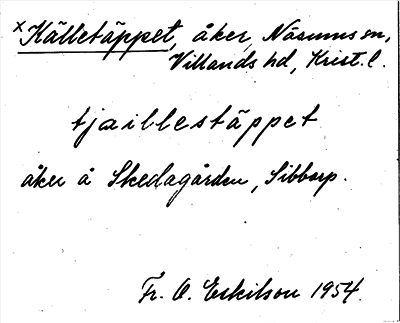 x Källetäppet, åker, Näsums sn,
Villands hd, Krist. l.
tjaillestäppet
åker å Skedagården, Sibborp.
Fr. O. Eskilson 1954.